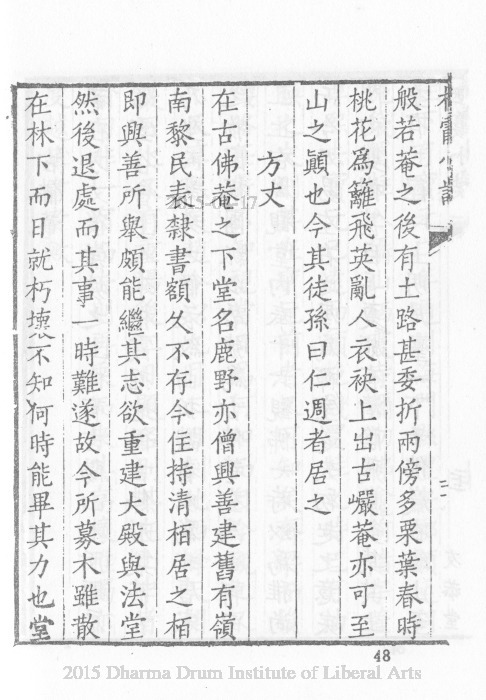 般若菴之後有土路甚委折兩傍多栗葉春時
桃花爲籬飛英亂人衣袂上出古巖菴亦可至
山之顚也今其徒孫曰仁週者居之
方丈
在古佛菴之下堂名鹿野亦僧興善建舊有嶺
南黎民表隸書額久不存今住持清栢居之栢
即興善所舉頗能繼其志欲重建大殿與法堂
然後退處而其事一時難遂故今所募木雖散
在林下而日就朽壞不知何時能畢其力也堂
二
48
2015 Dharma Drum Institute of Liberal Arts